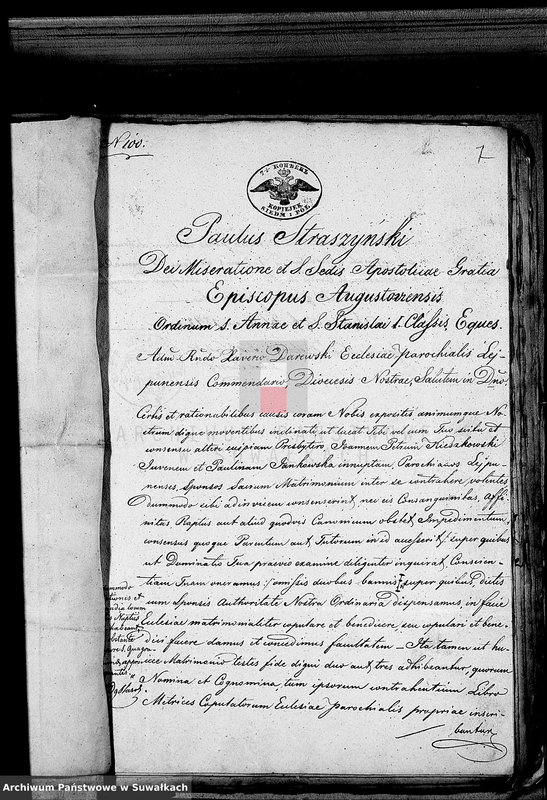 N 100.
7
7½ КОПѢЕКЪ
KOPIEJEK
SIEDM I PÓŁ
Paulus Straszyński
Dei Miseratione et S. Sedis Apostolicae Gratia
Episcopus Augustoviensis
Ordinum S. Annae et S. Stanislai I. Classis Eques.
Adm Rndo Xaverio Darewski Ecclesiae parochialis Lej-
punensis Commendario Dioecesis Nostrae, Salutem in Dno.
Certis et rationabilibus causis coram Nobis expositis animumque No
strum digne moventibus inclinati ut liceat Tibi vel cum Tuo scitu et
consensu alteri cuipiam Presbytero, Joannem Petrum Kieszkowski
Juvenem et Paulinam Jankowska innuptam, Parochianos Lejpu-
nenses, Sponsos Sacrum Matrimonium inter se contrahere volentes
dummodo sibi adinvicem consenserint, nec eis Consanguinitas, Affi-
nitas Raptus aut aliud quodvis Canonicum obstet Impedimentum,
consensus quoque Parentum aut Tutorum in id accesserit: super quibus
ut Dominatio Tua praevio examine diligenter inquirat, Conscien-
tiam Tuam oneramus: omissis duobus bannis super quibus, dictis
cum Sponsis Authoritate Nostra Ordinaria dispensamus, in facie
Ecclesiae matrimonialiter copulare et benedicere, seu copulari et bene-
dici facere damus et concedimus facultatem – Ita tamen ut hu-
icce Matrimonio testes fide digni duo aut tres adhibeantur, quorum
Nomina et Cognomina, tum ipsorum contrahentium Libro
Metrices Copulatorum Ecclesiae parochialis propriae inscri-
bantur
Archiwum Państwowe w Suwałkach